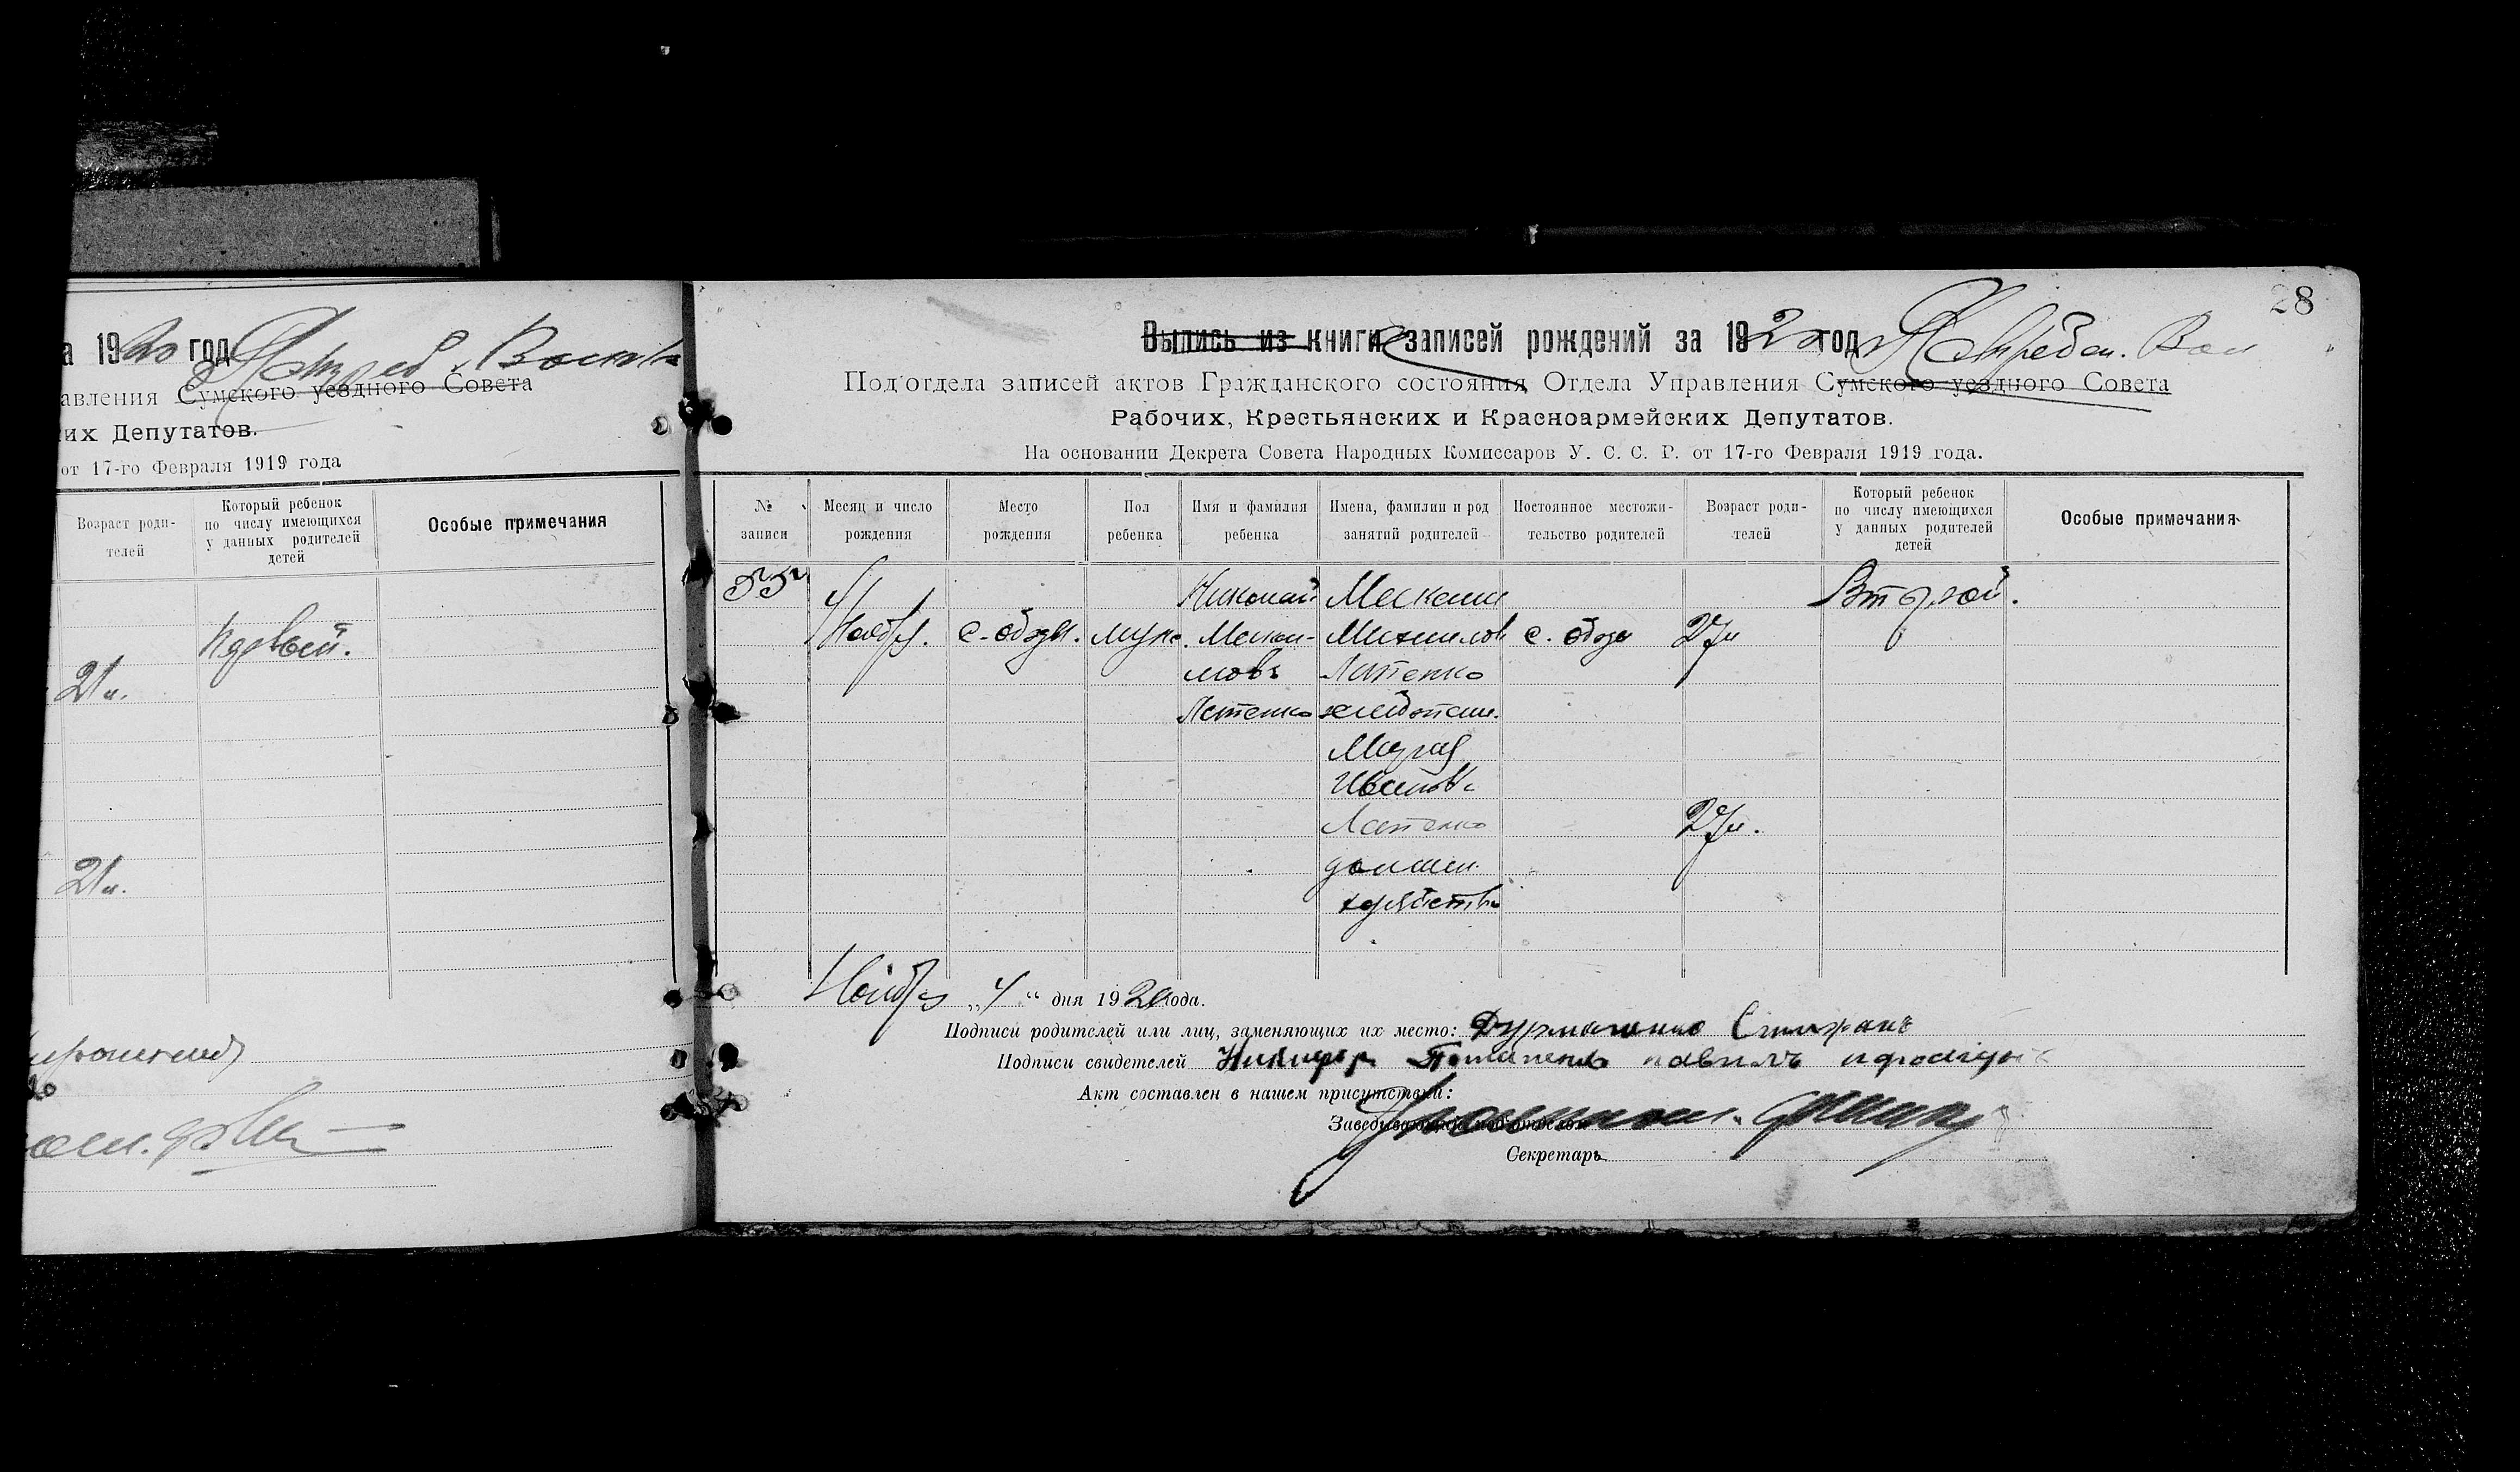 а 1920 год
авления Сумского уездного Совета
их Депутатов.
от 17-го Февраля 1919 года
Возраст роди-
телей
Который ребенок
по числу имеющихся
у данных родителей
детей
Особые примечания
21 л.
21 л.
28
Выпись из книги записей рождений за 1920 год
Под'отдела записей актов Гражданского состояния Отдела Управления Сумского уездного Совета
Рабочих, Крестьянских и Красноармейских Депутатов.
На основании Декрета Совета Народных Комиссаров У. С. С. Р. от 17-го Февраля 1919 года.
№
записи
Месяц и число
рождения
Место
рождения
Пол
ребенка
Имя и фамилия
ребенка
Имена, фамилии и род
занятий родителей
Постоянное местожи-
тельство родителей
Возраст роди-
телей
Который ребенок
по числу имеющихся
у данных родителей
детей
Особые примечания
55
4
Ноября.
с. Ободы.
муж.
Николай
Латенко
Максим
Михаилов
Латенко
хлебопаш.
Мария
Иванова
Латенко
домаш.
хозяйство
с. Ободы
27 л.
27 л.
Второй.
Ноября „4“ дня 1920 года.
Подписи родителей или лиц, заменяющих их место:
Подписи свидетелей Никифор
Акт составлен в нашем присутствии:
Заведывающий под'отделом
Секретарь